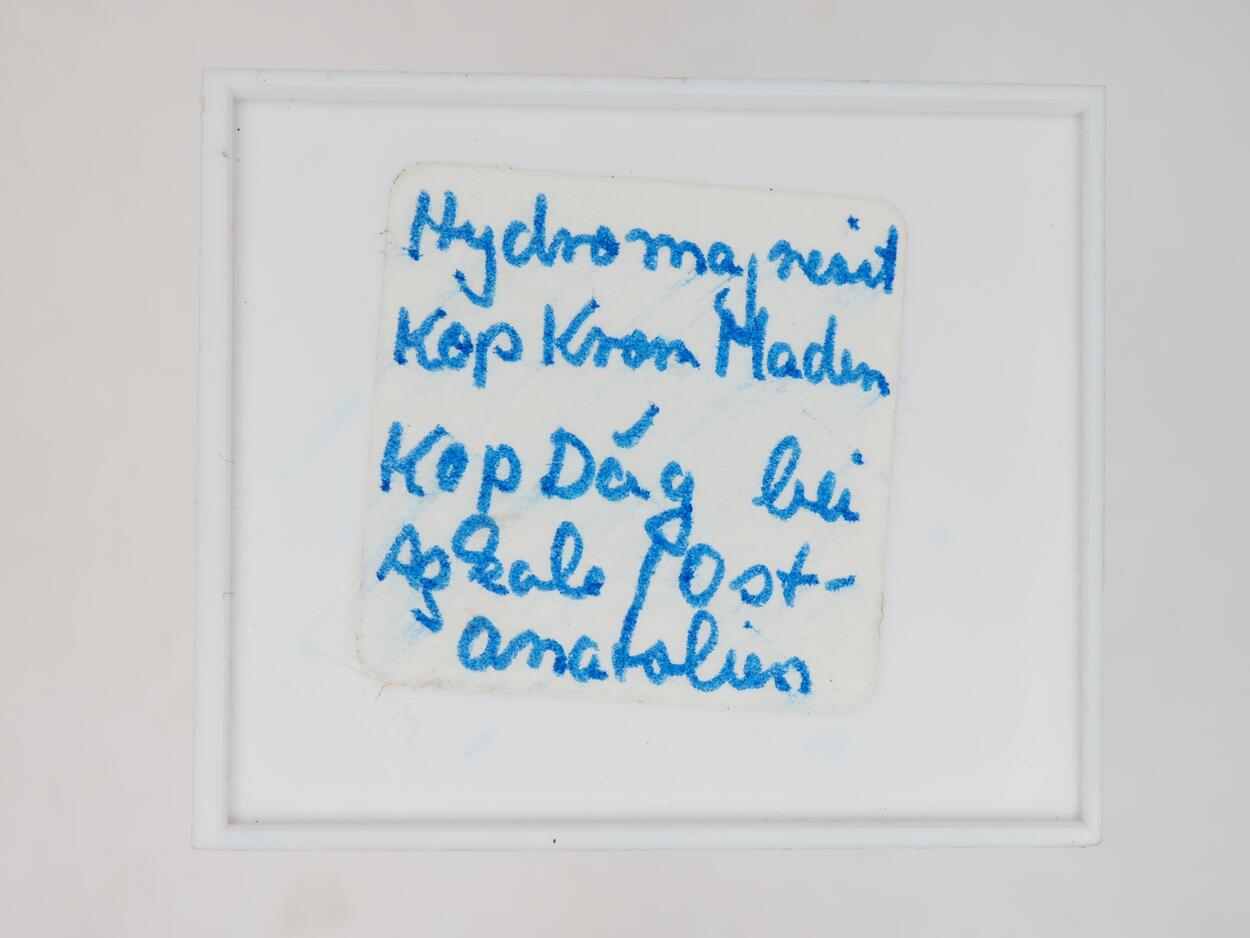 Hydromagnesit
Kop Krom Maden
Kop Dág bei
Aşkale / Ost-
anatolien